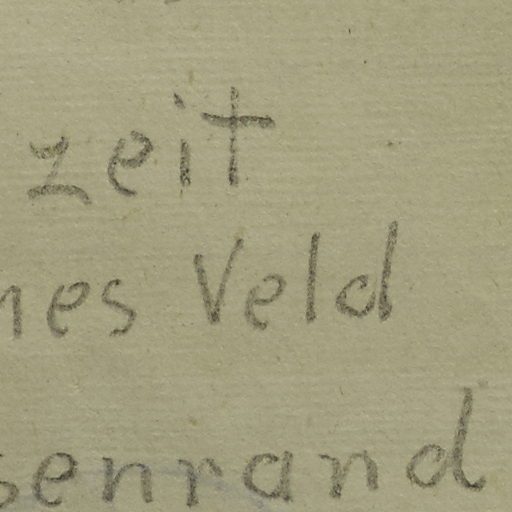 zeit
nes Veld
senrand